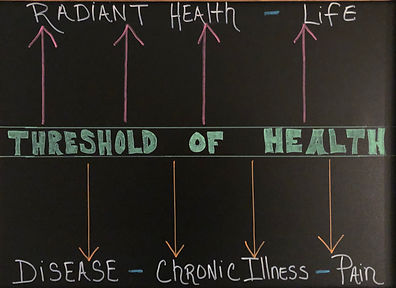 RADIANT HEALTH - LIFE
THRESHOLD OF HEALTH
DISEASE - CHRONIC ILLNESS - PAIN